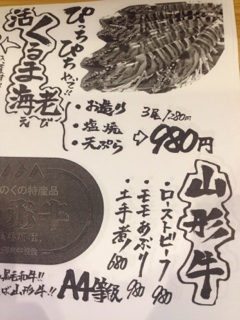 活くるま海老
えび
ぴっちぴちやで!!
・お造り
・塩焼
・天ぷら
3尾 1280円
⇨980円
山形牛
・ローストビーフ 980
・モモあぶり 980
・土手煮 680
A4等級
のくの特産品
黒毛和牛!!
ば山形牛!!